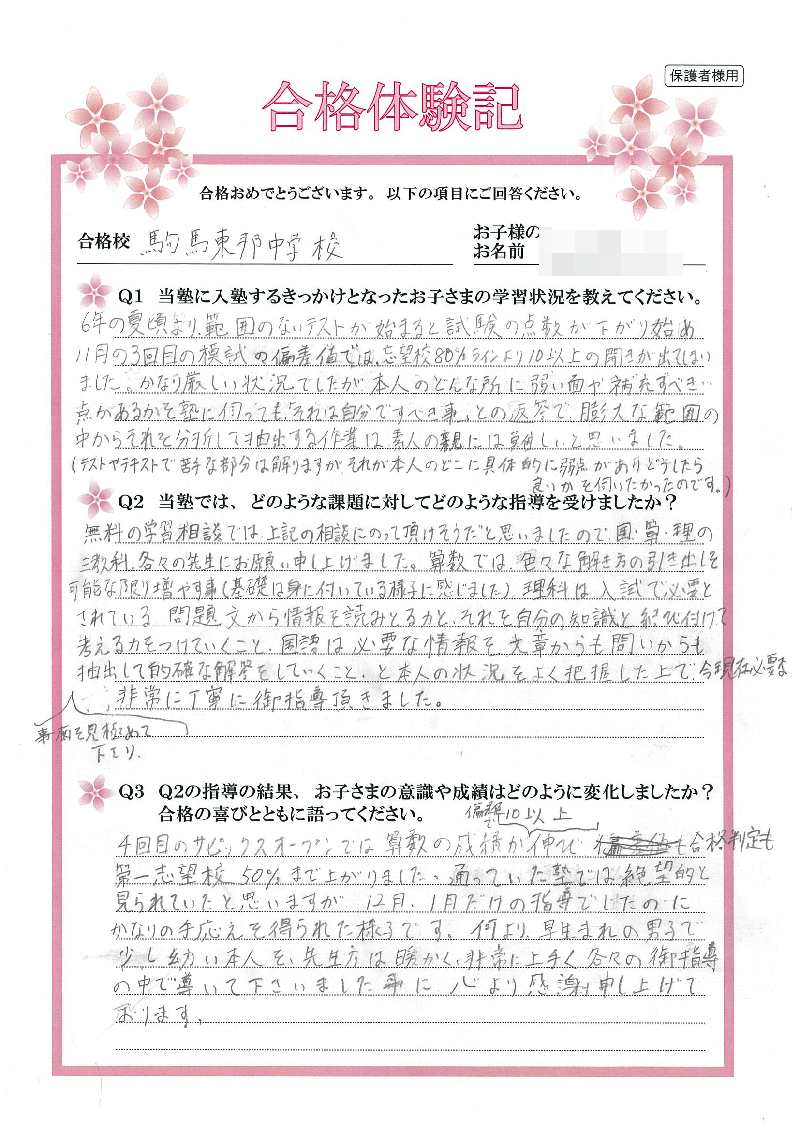 保護者様用
合格体験記
合格おめでとうございます。以下の項目にご回答ください。
合格校 駒場東邦中学校
お子様の
お名前
Q1 当塾に入塾するきっかけとなったお子さまの学習状況を教えてください。
6年の夏頃より範囲のないテストが始まると試験の点数が下がり始め
11月の3回目の模試の偏差値では、志望校80%ラインより10以上の開きが出てしまい
ました。かなり厳しい状況でしたが本人のどんな所に弱い面や補充すべき
点があるかを塾に伺っても「それは自分ですべき事」との返答で、膨大な範囲の
中からそれを分析して抽出する作業は素人の親には難しいと思いました。
(テストやテキストで苦手な部分は解りますが、それが本人のどこに具体的に弱点がありどうしたら
良いかを伺いたかったのです。)
Q2 当塾では、どのような課題に対してどのような指導を受けましたか？
無料の学習相談では上記の相談にのって頂けそうだと思いましたので国・算・理の
三教科、各々の先生にお願い申し上げました。算数では、色々な解き方の引き出しを
可能な限り増やす事(基礎は身に付いている様子に感じました)理科は入試で必要と
されている 問題文から情報を読みとる力と、それを自分の知識と結び付けて
考える力をつけていくこと、国語は必要な情報を文章からも問いからも
抽出して的確な解答をしていくこと、と本人の状況をよく把握した上で今現在必要な
事柄を見極めて
下さり、
非常に丁寧に御指導頂きました。
Q3 Q2の指導の結果、お子さまの意識や成績はどのように変化しましたか？
合格の喜びとともに語ってください。
偏差値で10以上
4回目のサピックスオープンでは算数の成績が伸び も合格判定も
第一志望校 50%まで上がりました。通っていた塾では絶望的と
見られていたと思いますが、12月、1月だけの指導でしたのに
かなりの手応えを得られた様子です。何より、早生まれの男子で
少し幼い本人を、先生方は暖かく、非常に上手く各々の御指導
の中で導いて下さいました事に、心より感謝申し上げて
おります。